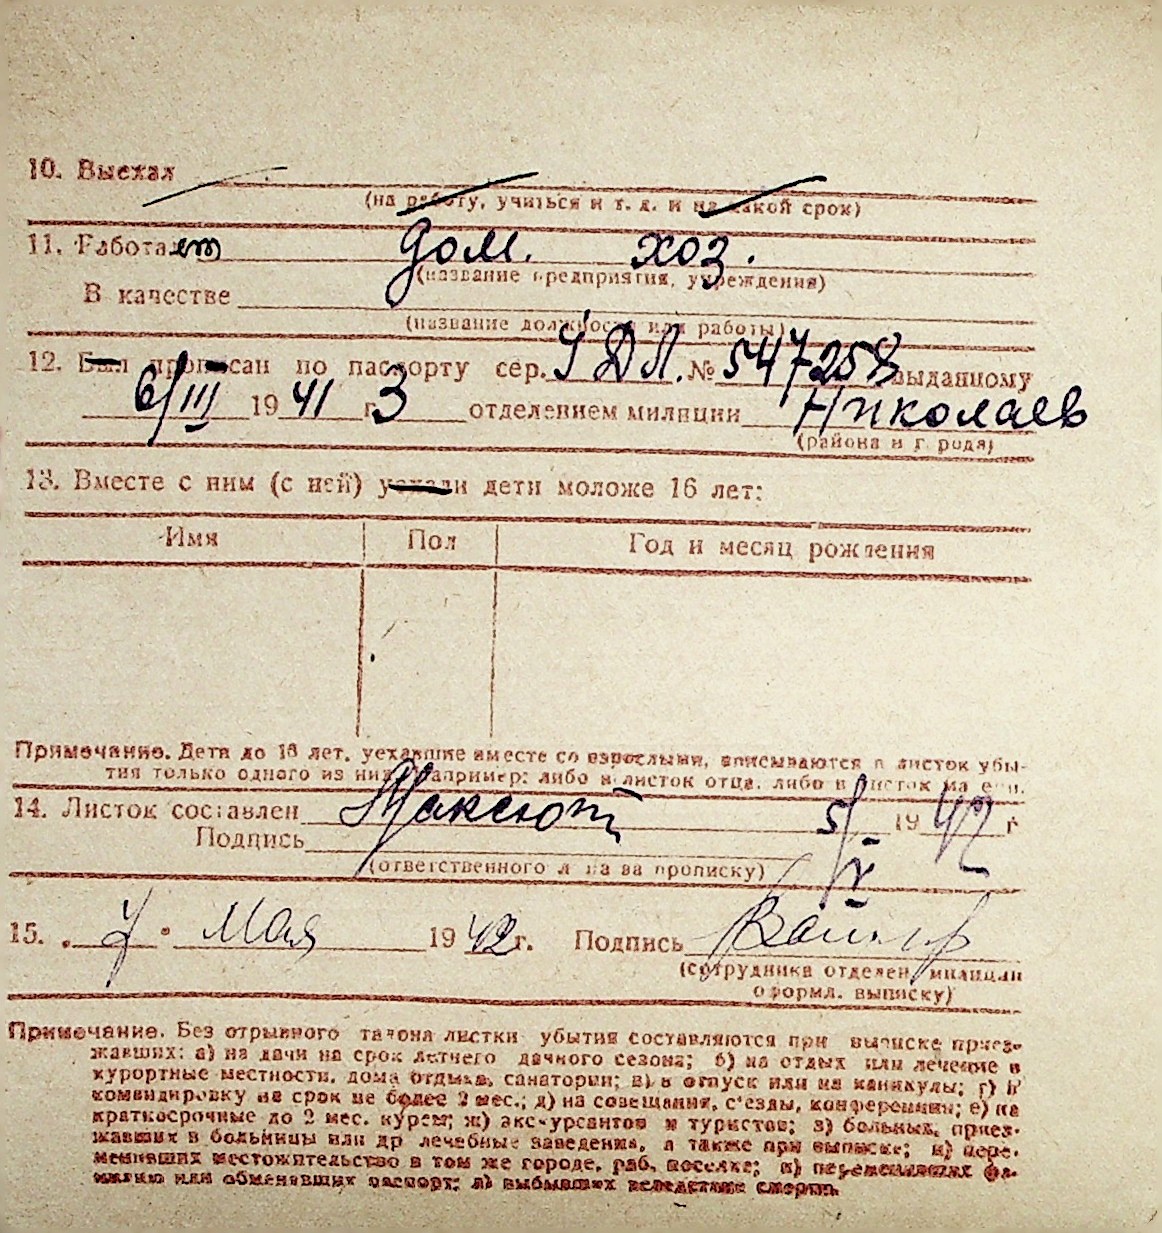 10. Выехал
(на работу, учиться и т. д. и на какой срок)
11. Работает дом. хоз.
(название предприятия, учреждения)
В качестве
(название должности или работы)
12. Был прописан по паспорту сер. ДЛ. № 547258 выданному
6/III 1941 г. 3 отделением милиции Николаев
(района и города)
13. Вместе с ним (с ней) уехали дети моложе 16 лет:
Имя Пол Год и месяц рождения
Примечание. Дети до 16 лет, уехавшие вместе со взрослыми, вписываются в листок убы-
тия только одного из них, например: либо в листок отца, либо в листок матери.
14. Листок составлен 5/V 1942 г
Подпись
(ответственного лица за прописку)
15. 7 Мая 1942 г. Подпись
(сотрудника отделен. милиции
оформл. выписку)
Примечание. Без отрывного талона листки убытия составляются при выписке приез-
жавших: а) на дачи на срок летнего дачного сезона; б) на отдых или лечение в
курортные местности, дома отдыха, санатории; в) в отпуск или на каникулы; г) в
командировку на срок не более 2 мес.; д) на совещания, с'езды, конференции; е) на
краткосрочные до 2 мес. курсы; ж) экскурсантов и туристов; з) больных, приез-
жавших в больницы или др лечебные заведения, а также при выписке; и) пере-
менивших местожительство в том же городе, раб. поселке; к) переменивших фа-
милию или обменявших паспорт; л) выбывших вследствие смерти.